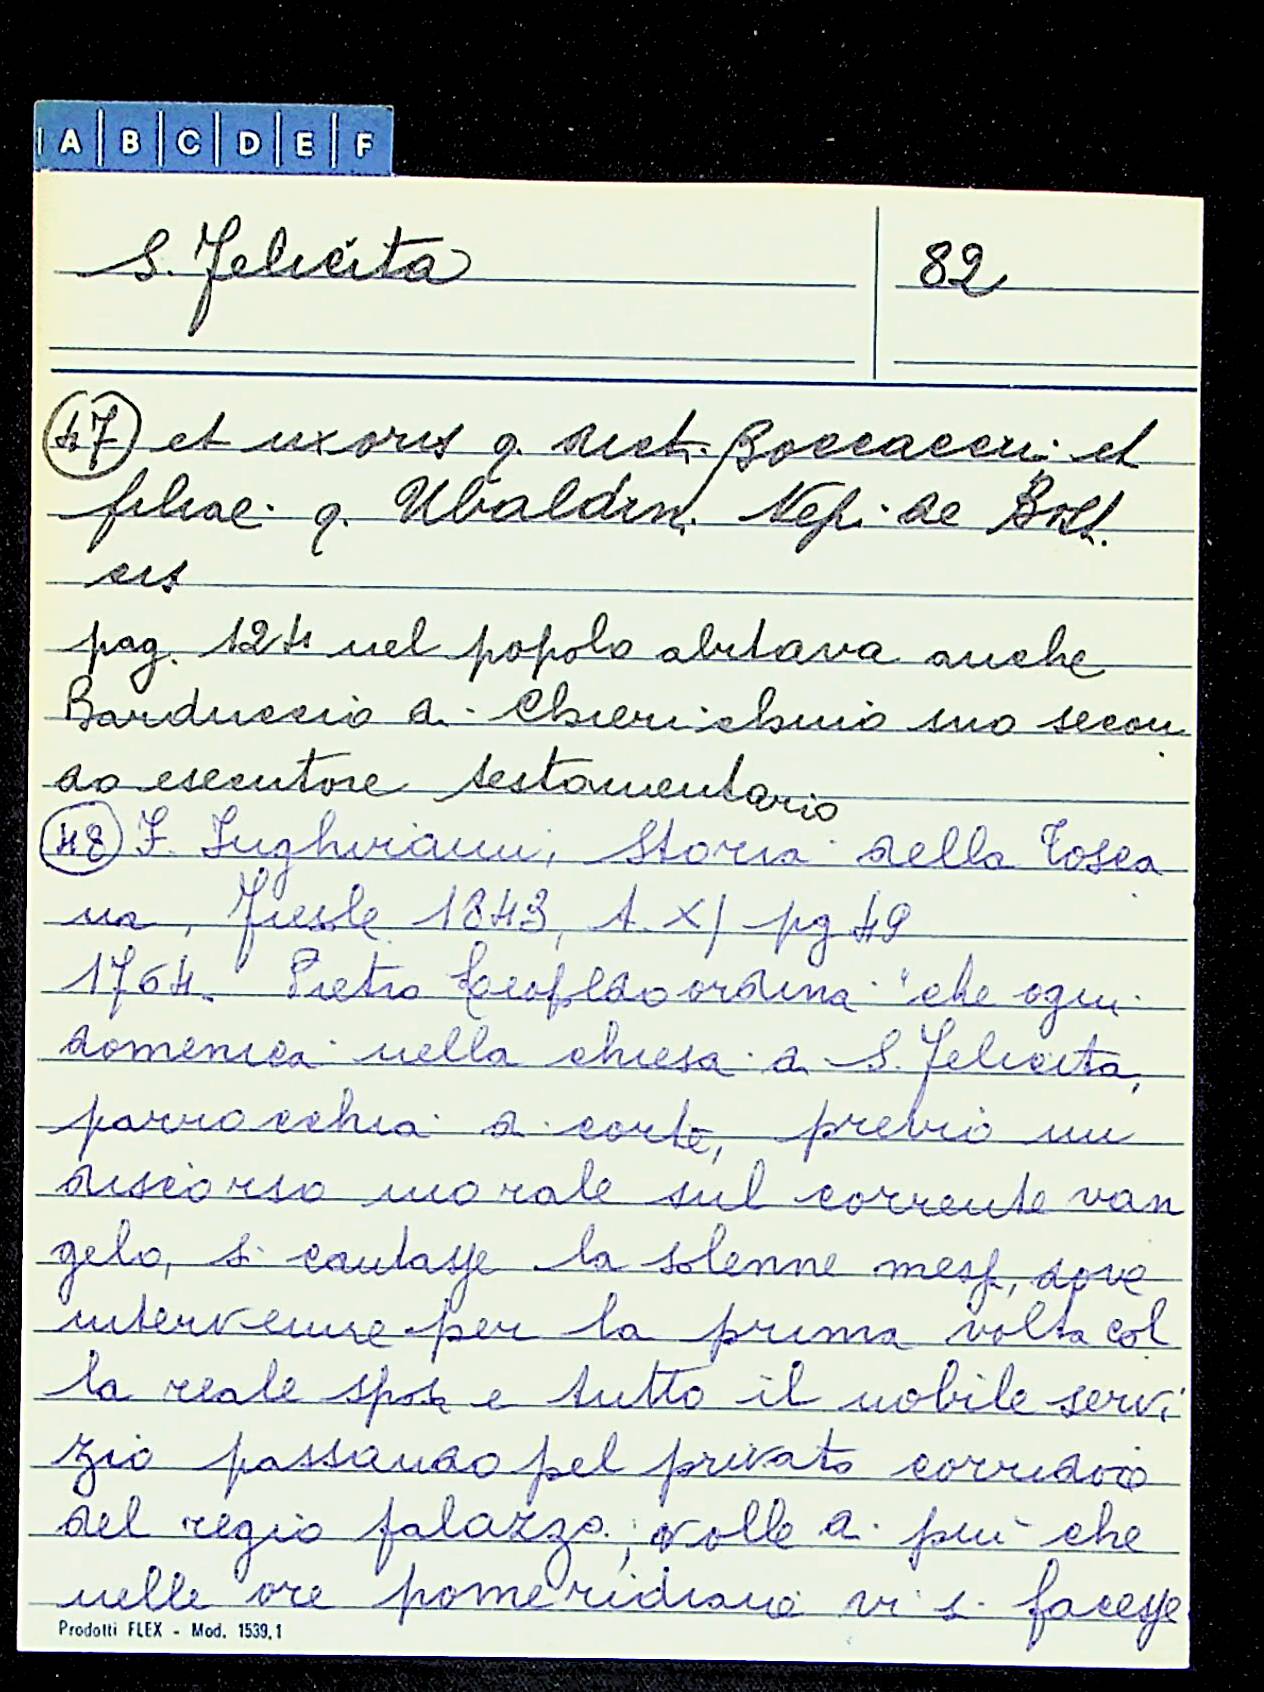 A B C D E F
S. Felicita
82
47 et uxoris q. dict. Boccaccii et
filiae q. Ubaldin. Nepi de
cis
pag. 124 nel popolo abitava anche
Barduccio di Chierichino suo secon
do esecutore testamentario
48 F. Inghirami, Storia della Tosca
na, Fiesole 1843, t. XI pg 49
1764. Pietro Leopoldo ordina "che ogni
domenica nella chiesa di S. Felicita,
parrocchia di corte, previo un
discorso morale sul corrente van
gelo, si cantasse la solenne messa, dove
intervenne per la prima volta col
la reale sposa e tutto il nobile servi
zio passando pel privato corridoio
del regio palazzo; volle di più che
nelle ore pomeridiane vi si facesse
Prodotti FLEX - Mod. 1539.1